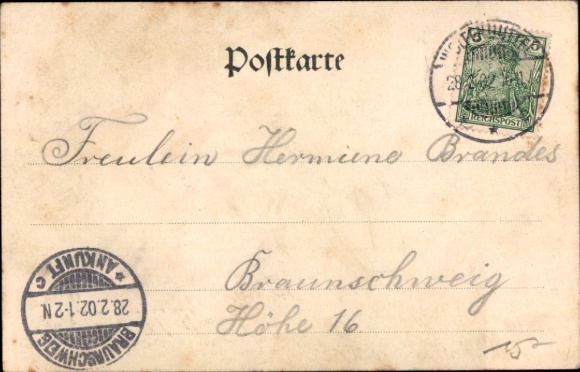 Postkarte
28.2.02
REICHSPOST
Freulein Hermiene Brandes
Braunschweig
Höhe 16
BRAUNSCHWEIG
* ANKUNFT C
28.2.02.1-2N.